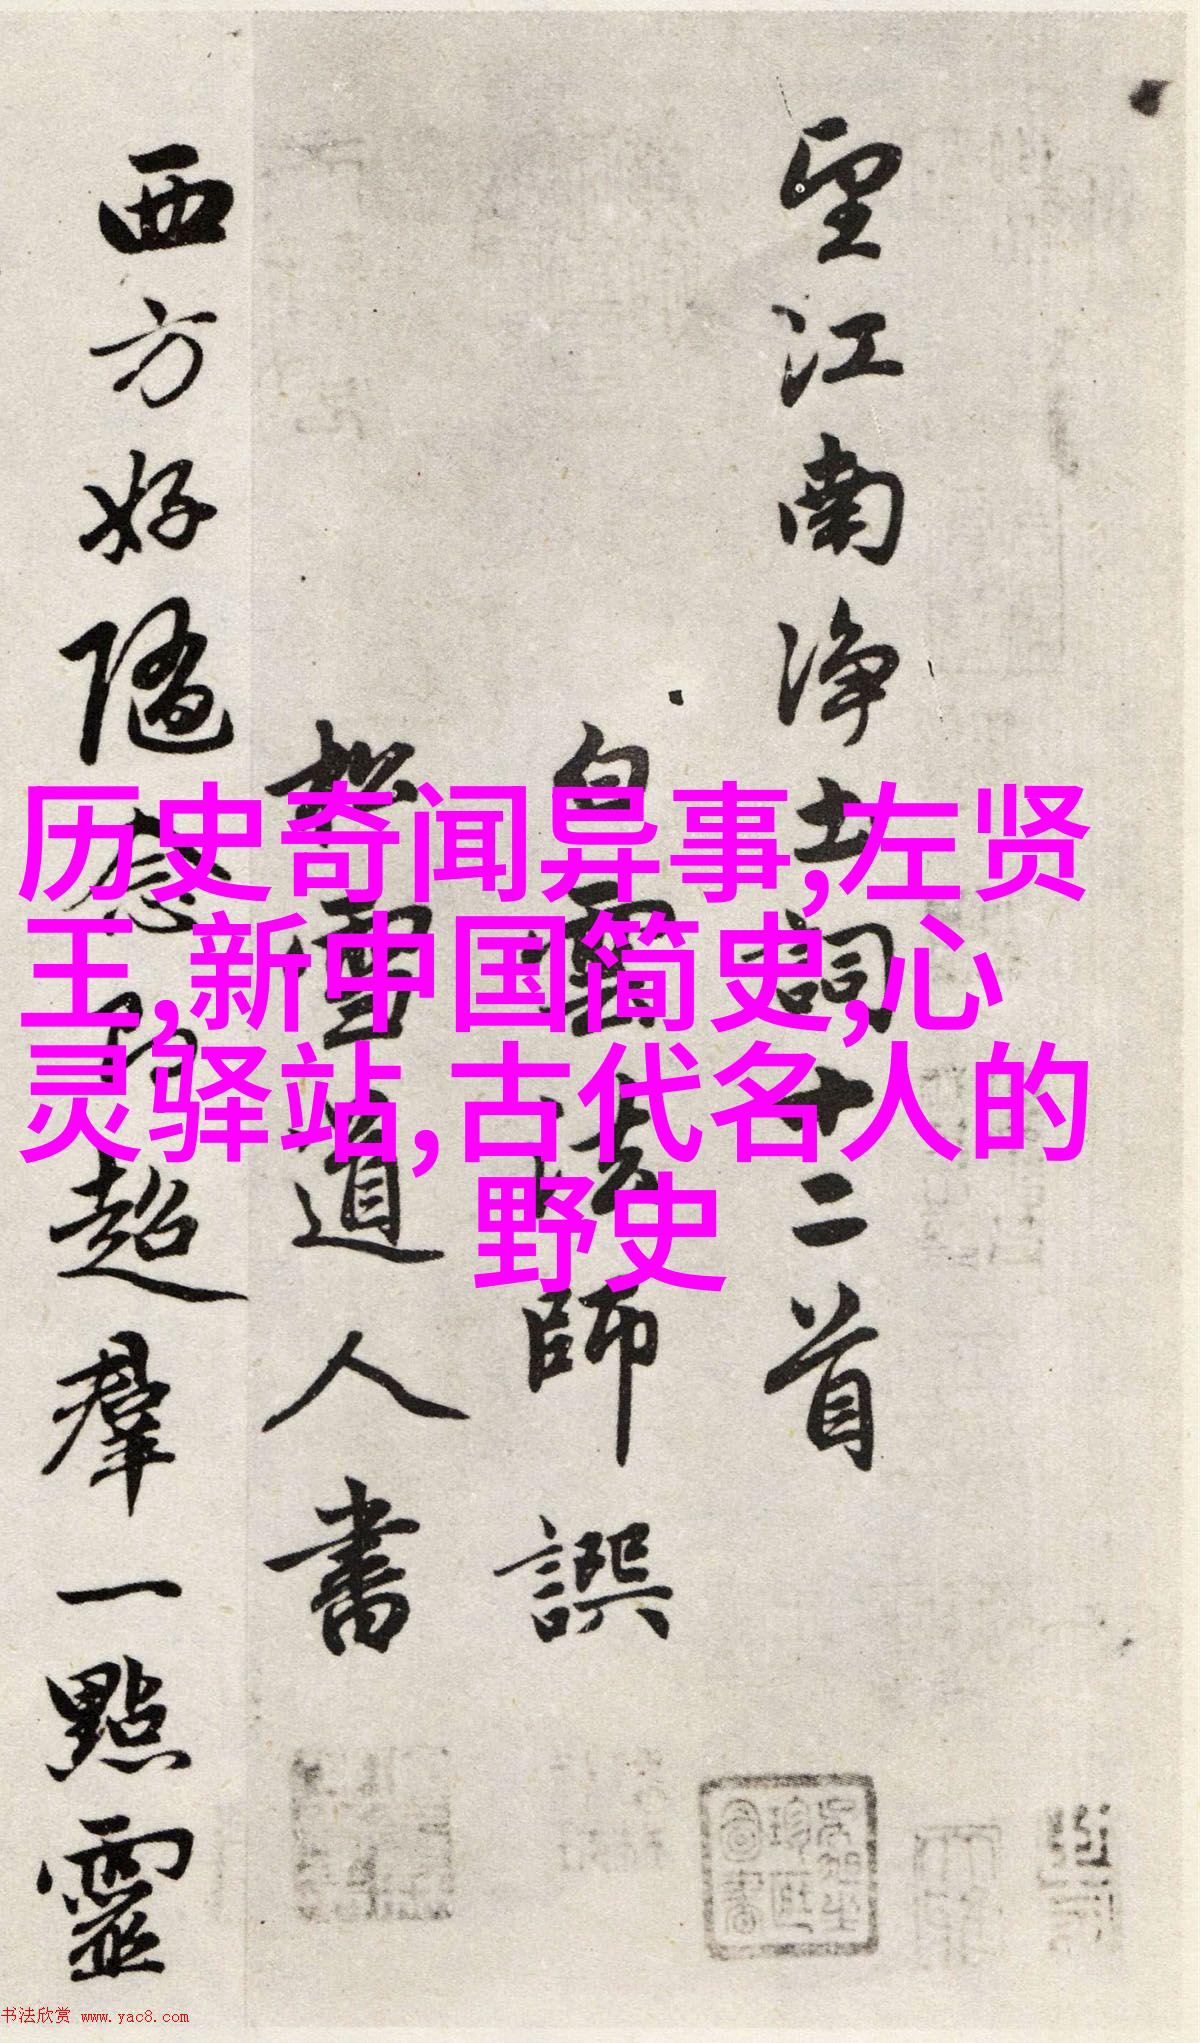 望江南净土詞十二首
白雲法師譔
松雪道人書
西方好隨念即超羣一點靈
历史奇闻异事,左贤
王,新中国简史,心
灵驿站,古代名人的
野史
书法欣赏 www.yac8.com